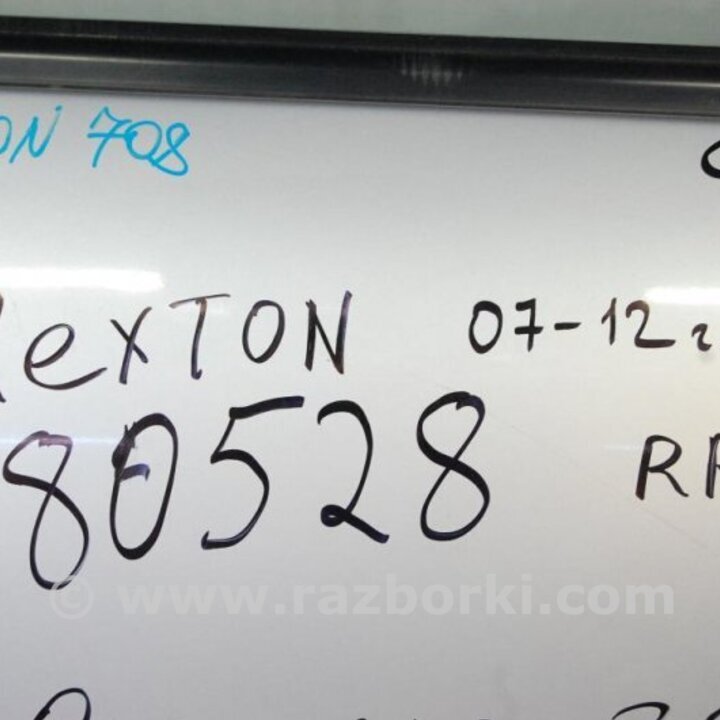 ON 708
RexTON 07-12г
80528 RR
© www.razborki.com